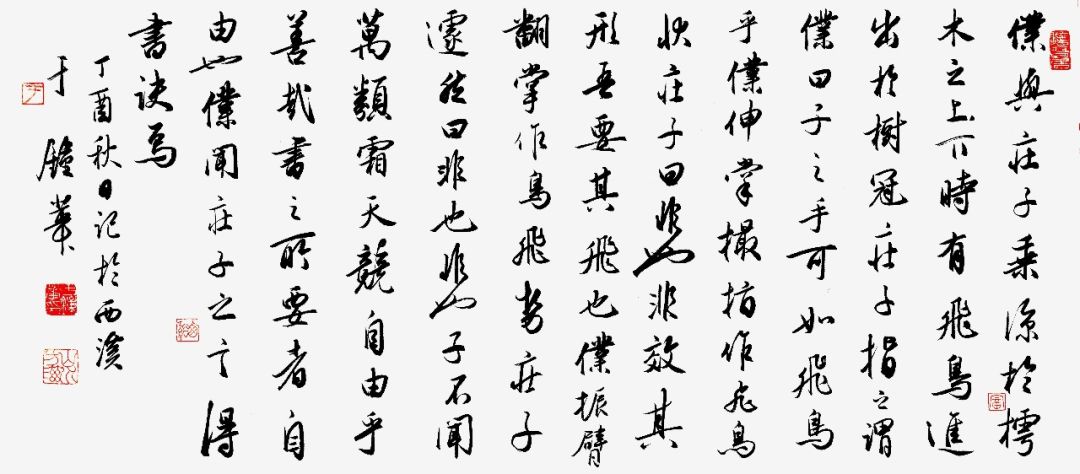 僕與庄子乘涼於樗
木之上下時有飛鳥進
出於樹冠庄子指之謂
僕曰子之手可如飛鳥
乎僕伸掌撮指作飛鳥
狀庄子曰非也非效其
形吾要其飛也僕振臂
翻掌作鳥飛勢庄子
遽然曰非也非也子不聞
萬類霜天競自由乎
善哉書之所要者自
由也僕聞庄子之言得
書訣焉
丁酉秋日記於西溪
于鐘華